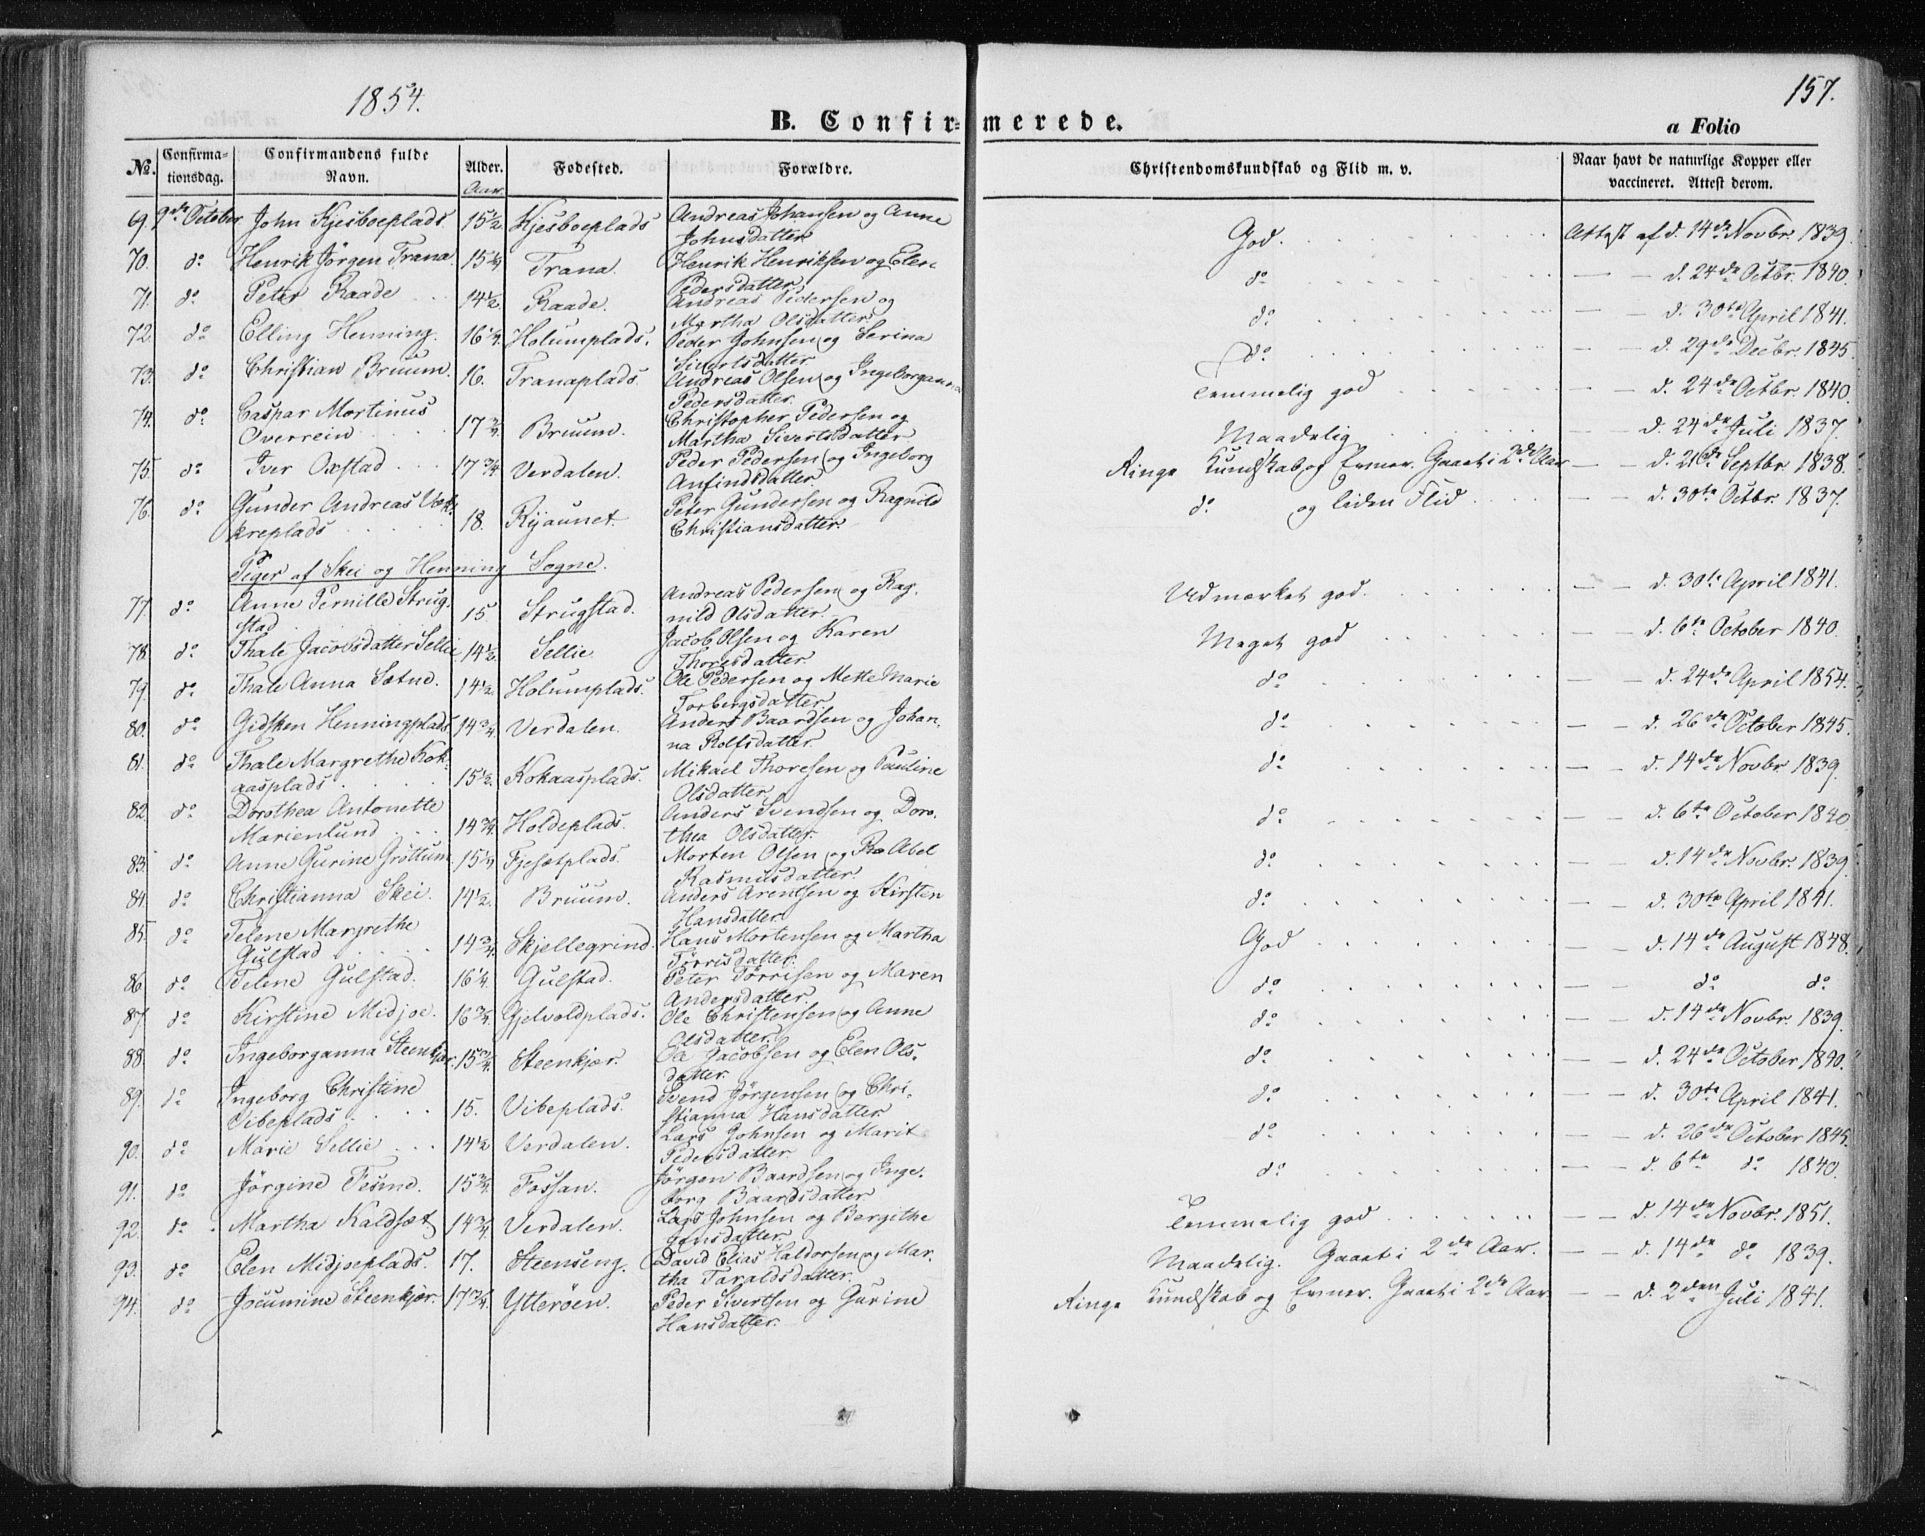 1854.
157.
B. Confirmerede.
a Folio
No. Confirmationsdag. Confirmandens fulde Navn. Alder. Aar. Fødested. Forældre. Christendomskundskab og Flid m. v. Naar havt de naturlige Kopper eller vaccineret. Attest derom.
69. 9de October John Kjesboeplads 15 1/2 Kjesboeplads Andreas Johansen og Anne Johnsdatter God. Attest af d. 14de Novbr. 1839.
70. do Henrik Jørgen Trana 15 1/4 Trana. Henrik Henriksen og Elen Pedersdatter do — — d. 24de Octbr. 1840.
71. do Peter Raade 14 1/2 Raade. Andreas Pedersen og Martha Olsdatter do d. 30te April 1841.
72. do Elling Henning. 16 1/4 Holumplads. Peder Johnsen og Serina Sivertsdatter do. d. 29de Decbr. 1845.
73. do Christian Bruum. 16. Tranaplads. Andreas Olsen og Ingeborganna Pedersdatter. Temmelig god d. 24de Octbr. 1840.
74. do Caspar Martinus Overrein 17 3/4 Bruum. Christopher Pedersen og Martha Sivertsdatter Maadelig — d. 24de Juli 1837.
75. do Iver Oxstad 17 3/4 Verdalen. Peder Pedersen og Ingeborg Anfindsdatter Ringe Kundskab og Evner. Gaaet i 2de Aar — — d. 21de Septbr. 1838.
76. do Gunder Andreas Vækreplads 18. Ryaunet. Peter Gundersen og Ragnild Christiansdatter. do og liden Flid — d. 30te Octbr. 1837.
Piger af Skei og Henning Sogne.
77. do Anne Pernille Strugstad 15. Strugstad. Andreas Pedersen og Ragnild Olsdatter. Udmærket god. — — d. 30te April 1841.
78. do Thale Jacobsdatter Sellie 14 1/2 Sellie Jacob Olsen og Karen Thoresdatter Meget god — d. 6te October 1840.
79. do Thale Anna Sætnd. 14 1/2. Holumplads. Ole Pedersen og Mette Marie Torbergsdatter do — — d. 24de April 1854.
80. do Gidsken Henningplads 14 3/4 Verdalen. Anders Baardsen og Johanna Rolfsdatter do — — d. 26de October 1845.
81. do Thale Margrethe Kokaasplads 15 1/2. Kokaasplads. Mikael Thoresen og Pauline Olsdatter do — — d. 14de Novbr 1839.
82 do Dorothea Antonette Marienlund 14 3/4 Holdeplads. Anders Svendsen og Dorothea Olsdatter. do — — d. 6te October 1840
83. do Anne Gurine Grøttum 15 1/4 Fjesetplads. Morten Olsen og Ra Abel Rasmusdatter. do — — d. 14de Novbr. 1839.
84. do Christianna Skei. 14 1/2. Bruum. Anders Arentsen og Kirsten Hansdatter do — — d. 30te April 1841.
85. do Telene Margrethe Gulstad 14 3/4 Skjellegrind. Hans Mortensen og Martha Tørrisdatter. God — — d. 14de August 1848.
86 do Telene Gulstad. 16 1/4 Gulstad. Peter Tørrisen og Maren Andersdatter. do — — do do
87. do Kirstine Midjoe. 16 3/4. Gjelvoldplads. Ole Christensen og Anne Olsdatter. do — — d. 14de Novbr. 1839.
88. do Ingeborganna Steenkjær. 15 3/4. Steenkjær. Ole Jacobsen og Elen Olsdatter. do — — d. 24de October 1840.
89. do Ingeborg Christine Vibeplads 15. Vibeplads. Svend Jørgensen og Christianna Hansdatter do — — d. 30te April 1841.
90. do Marie Sellie 14 1/2 Verdalen. Lars Johnsen og Marit Pedersdatter. do — — d. 26de October 1845.
91. do Jørgine Tesmo. 15 3/4. Fossan. Jørgen Baardsen og Ingeborg Baardsdatter do — — d. 6te do 1840.
92. do Martha Kaldsæt 14 3/4 Verdalen. Lars Johnsen og Bergithe Jensdatter. Temmelig god — — d. 14de Novbr. 1851.
93. do Elen Midjoeplads. 17. Steenseng. David Elias Haldorsen og Martha Taraldsdatter. Maadelig. Gaaet i 2de Aar. — — d. 14de do 1839.
94. do Jocumine Steenkjær. 17 3/4. Ytterøen. Peder Sivertsen og Gurine Hansdatter. Ringe Kundskab og Evner. Gaaet i 2de Aar — — d. 2den Juli 1841.